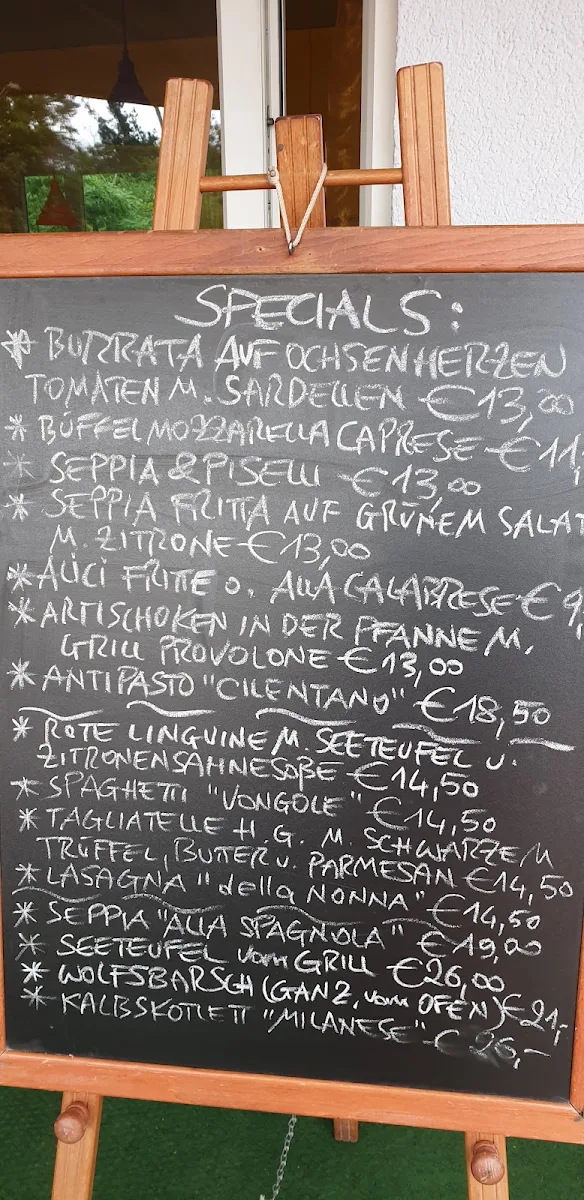 SPECIALS:
* BURRATA AUF OCHSENHERZEN
TOMATEN M. SARDELLEN €13,00
* BÜFFELMOZZARELLA CAPRESE - €11,
* SEPPIA & PISELLI - €13,00
* SEPPIA FRITTA AUF GRÜNEM SALAT
M. ZITRONE - €13,00
* ALICI FRITTE O. ALLA CALABRESE - €9,
* ARTISCHOKEN IN DER PFANNE M.
GRILL PROVOLONE - €13,00
* ANTIPASTO "CILENTANO" €18,50
* ROTE LINGUINE M. SEETEUFEL U.
ZITRONENSAHNESOßE €14,50
* SPAGHETTI "VONGOLE" €14,50
* TAGLIATELLE H.G. M. SCHWARZEM
TRÜFFEL, BUTTER U. PARMESAN €14,50
* LASAGNA "della NONNA" €14,50
* SEPPIA "ALLA SPAGNOLA" €19,00
* SEETEUFEL vom GRILL €26,00
* WOLFSBARSCH (GANZ, vom OFEN) €21,-
* KALBSKOTLETT "MILANESE" - € 26,-